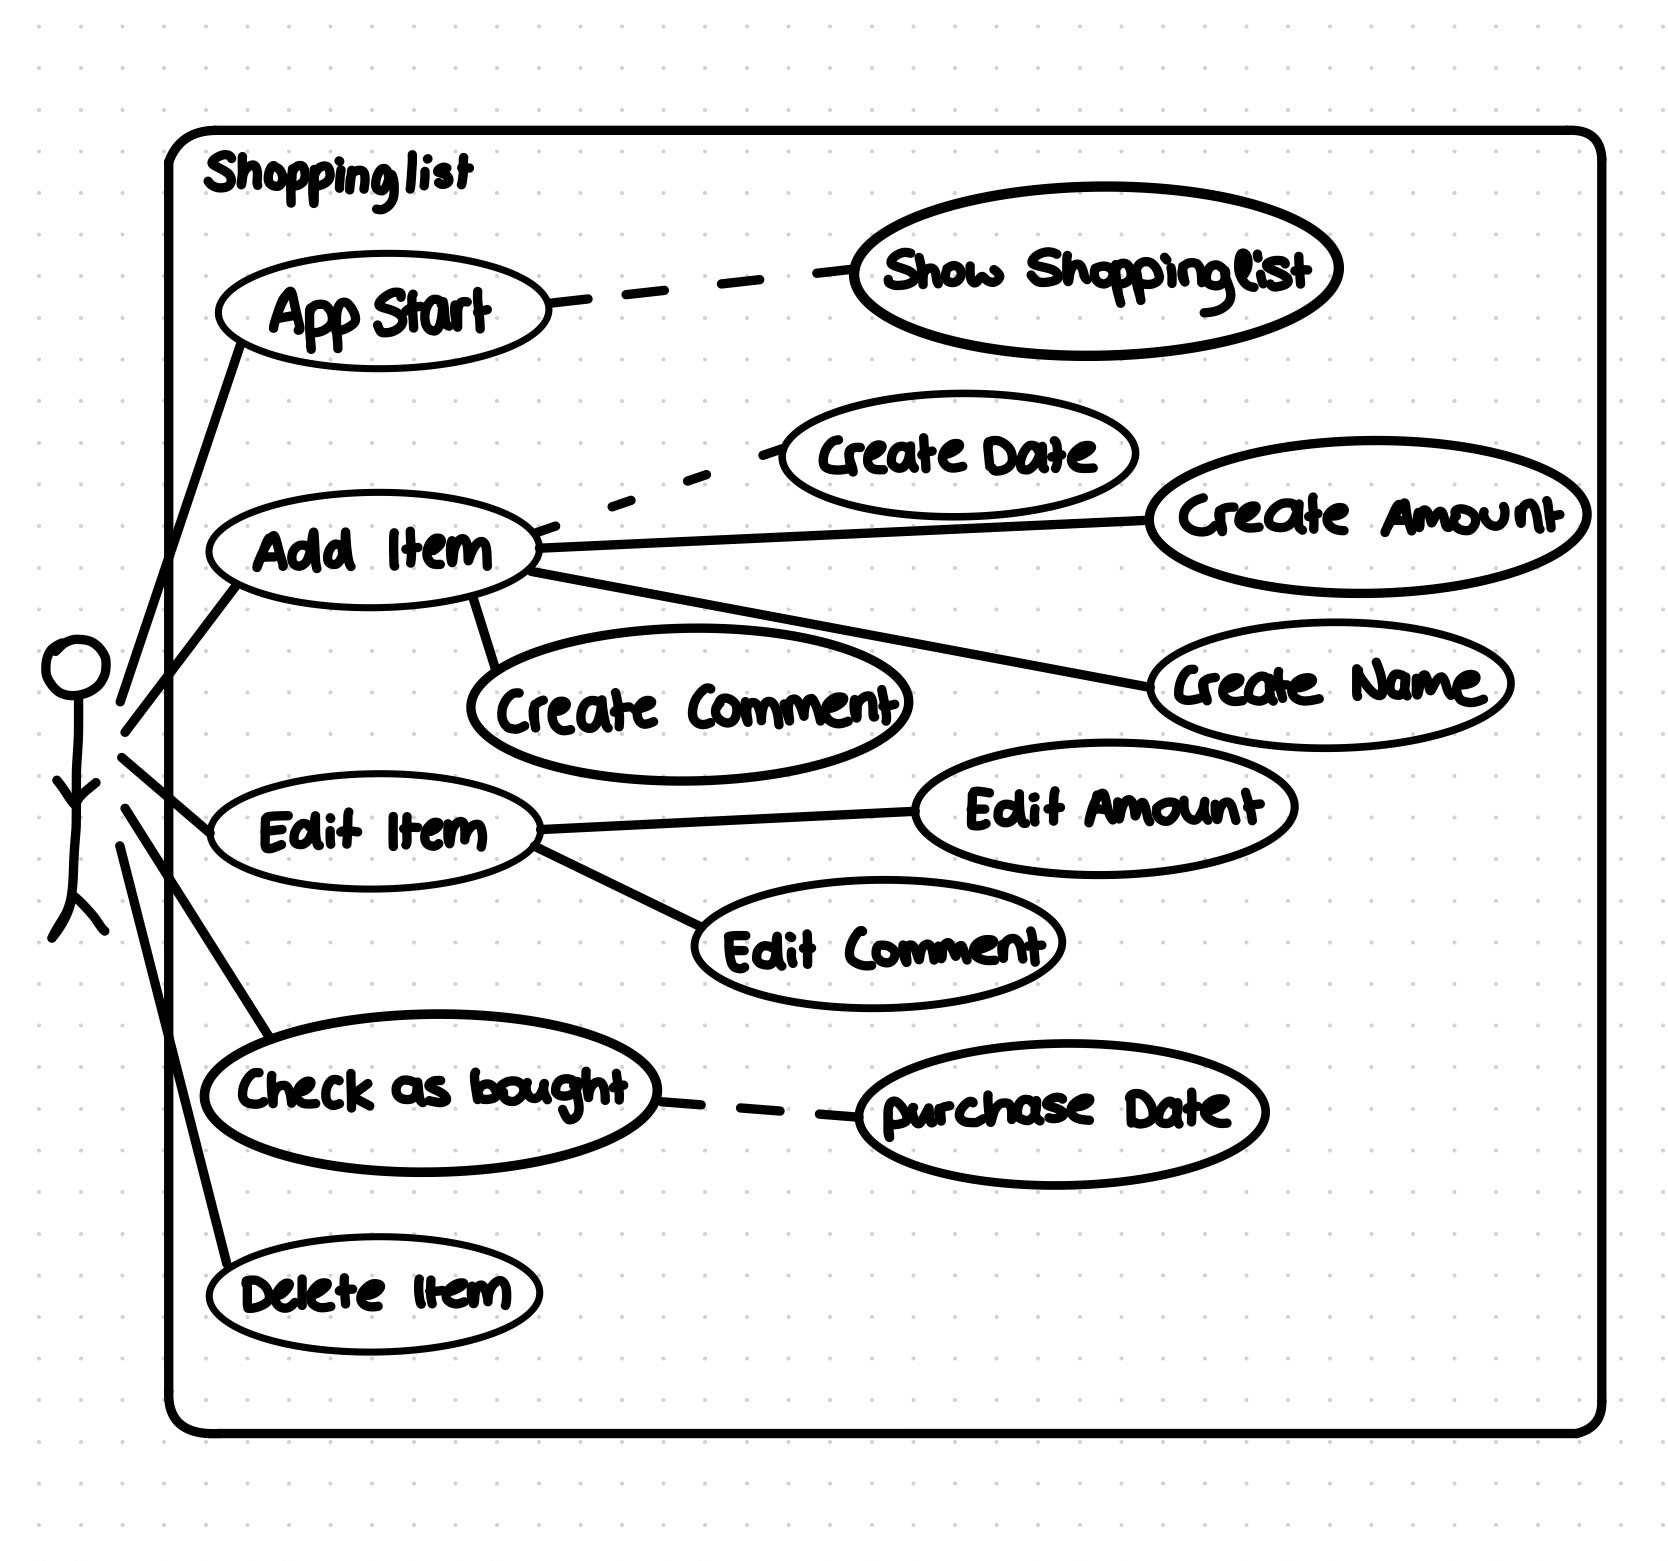 Shoppinglist
App Start
Show Shoppinglist
Create Date
Create Amount
Add Item
Create Name
Create Comment
Edit Item
Edit Amount
Edit Comment
Check as bought
purchase Date
Delete Item